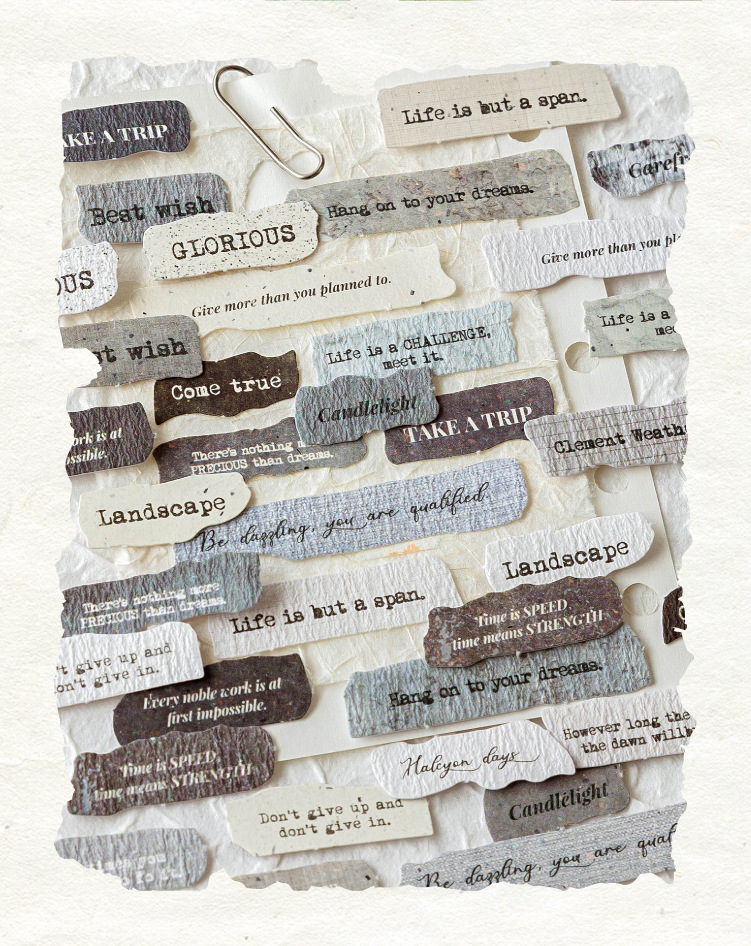 Life is but a span.
AKE A TRIP
Carefr
Best wish
Hang on to your dreams.
GLORIOUS
Give more than you pl
OUS
Give more than you planned to.
Life is a
mee
st wish
Life is a CHALLENGE,
meet it.
Come true
Candlelight
TAKE A TRIP
ork is at
ossible.
Clement Weath
There's nothing m
PRECIOUS than dreams.
Landscape
Be dazzling, you are qualified.
Landscape
There's nothing more
PRECIOUS than dreams.
Life is but a span.
Time is SPEED
time means STRENGTH
't give up and
on't give in.
Hang on to your dreams.
Every noble work is at
first impossible.
However long the
the dawn will b
Time is SPEED
time means STRENGTH
Halcyon days
Candlelight
Don't give up and
don't give in.
Be dazzling, you are qualif
you